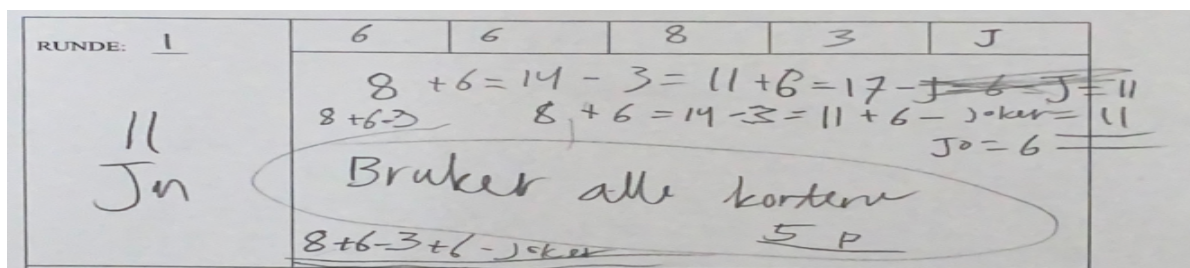 RUNDE: 1
6 6 8 3 J
8 + 6 = 14 - 3 = 11 + 6 = 17 - J = 11
8 + 6 - 3
8 + 6 = 14 - 3 = 11 + 6 - joker = 11
Jo = 6
11
Jn
Bruker alle kortene
5 p
8 + 6 - 3 + 6 - joker